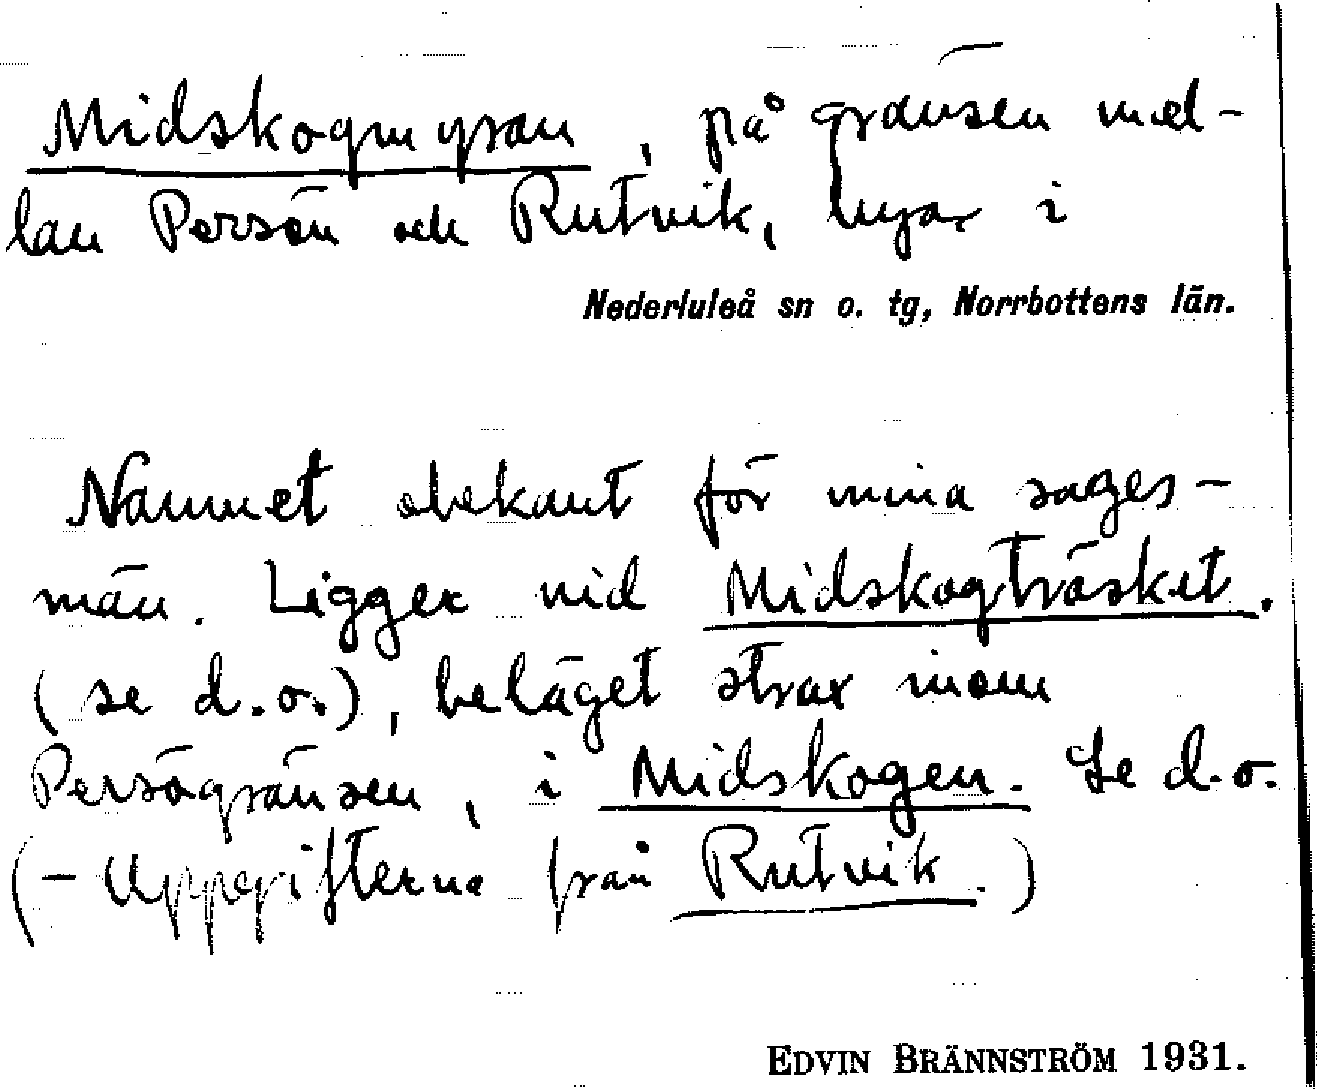 Midskogmyran, på gränsen mel-
lan Persön och Rutvik, byar i
Nederluleå sn o. tg, Norrbottens län.
Namnet obekant för mina sages-
män. Ligger vid Midskogträsket.
(se d.o.), beläget strax inom
Persögränsen, i Midskogen. Se d.o.
(- Uppgifterna från Rutvik.)
EDVIN BRÄNNSTRÖM 1931.